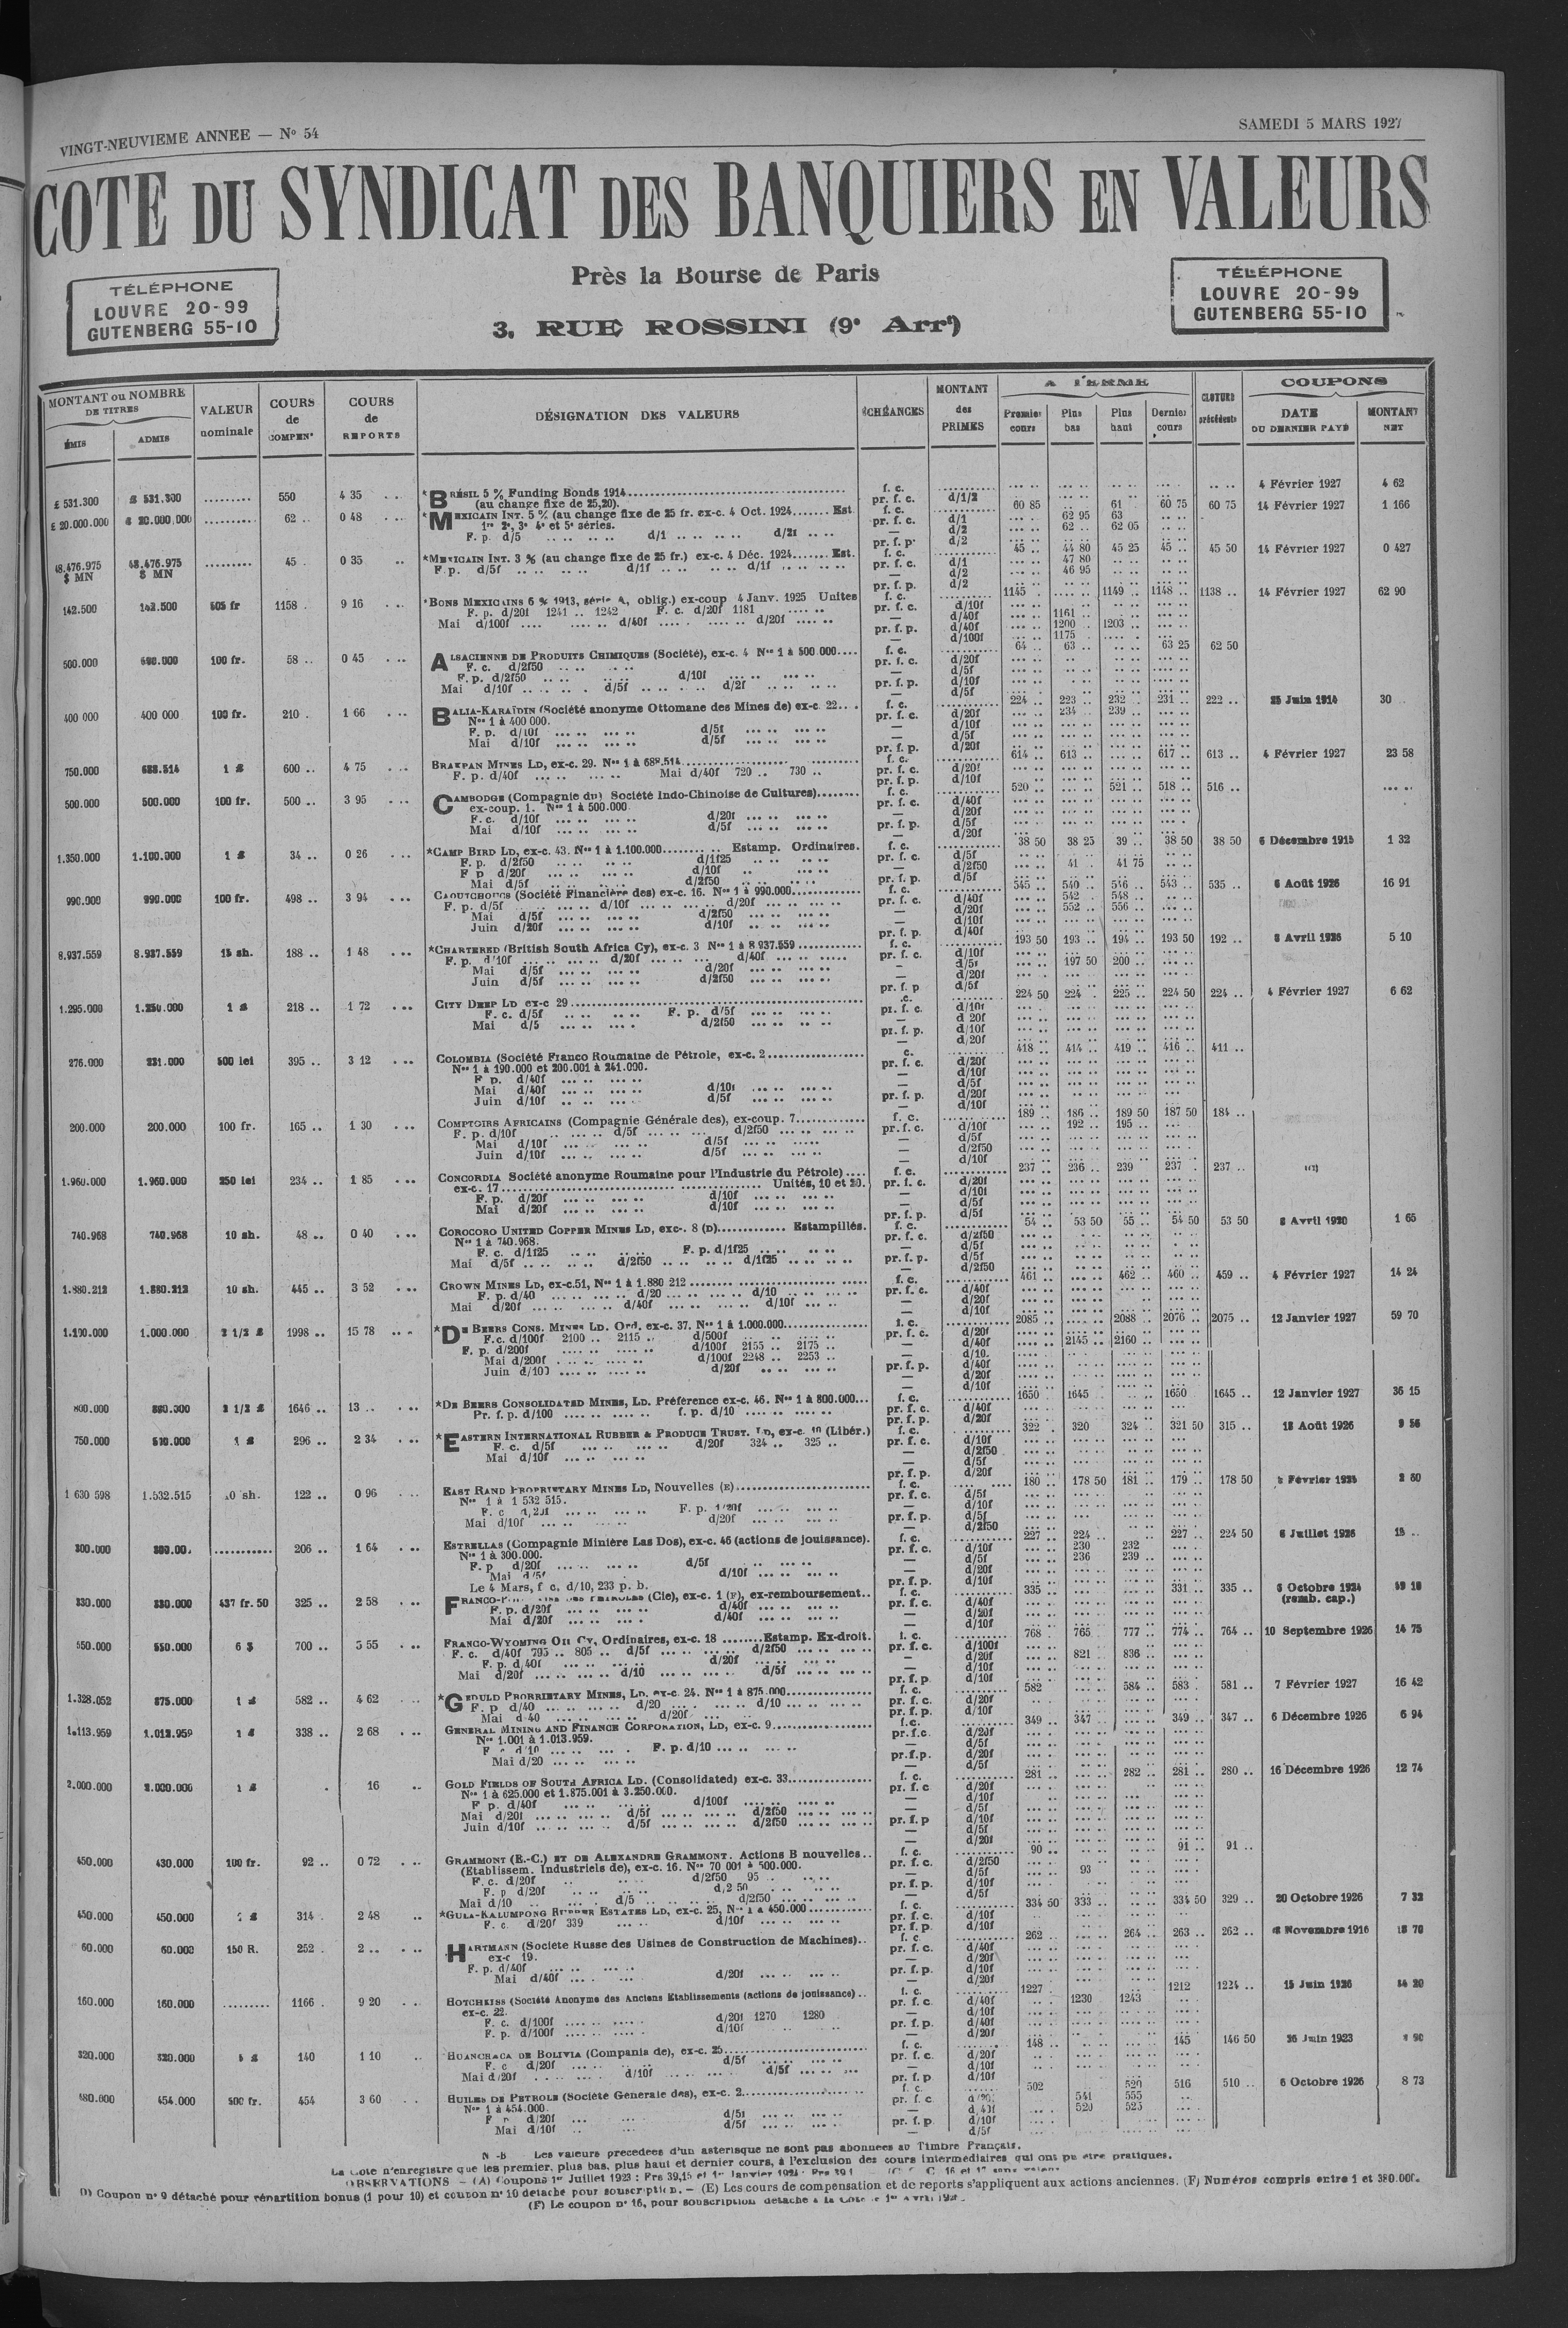 VINGT-NEUVIEME ANNEE — No 54
SAMEDI 5 MARS 1927
COTE DU SYNDICAT DES BANQUIERS EN VALEURS
Près la Bourse de Paris
3, RUE ROSSINI (9e Arrt)
TÉLÉPHONE
LOUVRE 20-99
GUTENBERG 55-10
TÉLÉPHONE
LOUVRE 20-99
GUTENBERG 55-10
MONTANT ou NOMBRE DE TITRES
ÉMIS
ADMIS
VALEUR nominale
COURS de COMPENn
COURS de REPORTS
DÉSIGNATION DES VALEURS
ÉCHÉANCES
MONTANT des PRIMES
A TERME
Premier cours
Plus bas
Plus haut
Dernier cours
CLOTURE précédente
COUPONS
DATE DU DERNIER PAYÉ
MONTANT NET
£ 531.300 £ 531.300 ......... 550 4 35 *BRÉSIL 5 % Funding Bonds 1914 f. c. 4 Février 1927 4 62
(au change fixe de 25,20). pr. f. c. d/1/2
£ 20.000.000 £ 20.000.000 ......... 62 .. 0 48 *MEXICAIN INT. 5 % (au change fixe de 25 fr. ex-c. 4 Oct. 1924....... Est. f. c. 60 85 61 60 75 60 75 14 Février 1927 1 166
1re 2e, 3e 4e et 5e séries. pr. f. c. d/1 62 95 63
F. p. d/5 d/1 d/2f d/2 62 .. 62 05
48.476.975 $ MN 48.476.975 $ MN ......... 45 . 0 35 *MEXICAIN INT. 3 % (au change fixe de 25 fr.) ex-c. 4 Déc. 1924....... Est. f. c. 45 .. 44 80 45 25 45 .. 45 50 14 Février 1927 0 427
F. p. d/5f d/1f d/1f pr. f. c. d/1 47 80
d/2 46 95
142.500 142.500 505 fr 1158 . 9 16 *BONS MEXICAINS 6 % 1913, série A, oblig.) ex-coup 4 Janv. 1925 Unites f. c. 1145 . 1149 .. 1148 .. 1138 .. 14 Février 1927 62 90
F. p. d/20f 1241 .. 1242 F. c. d/20f 1181 pr. f. c. d/10f
Mai d/100f d/40f d/20f d/40f 1161 ..
pr. f. p. d/40f 1200 .. 1203 ..
— d/100f 1175
500.000 500.000 100 fr. 58 .. 0 45 ALSACIENNE DE PRODUITS CHIMIQUES (Société), ex-c. 4 Nos 1 à 500.000.... f. c. 64 .. 63 .. 63 25 62 50
F. c. d/2f50 pr. f. c. d/20f
F. p. d/2f50 d/10f — d/5f
Mai d/10f d/5f d/2f pr. f. p. d/10f
— d/5f
400 000 400 000 100 fr. 210 . 1 66 BALIA-KARAÏDIN (Société anonyme Ottomane des Mines de) ex-c. 22... f. c. 224 .. 223 .. 232 .. 231 .. 222 .. 25 Juin 1914 30
Nos 1 à 400 000. pr. f. c. d/20f 234 .. 239 ..
F. p. d/10f d/5f — d/10f
Mai d/10f d/5f — d/5f
pr. f. p. d/20f
750.000 688.514 1 £ 600 .. 4 75 BRAKPAN MINES LD, ex-c. 29. Nos 1 à 688.514 f. c. 614 .. 613 .. 617 .. 613 .. 4 Février 1927 23 58
F. p. d/40f Mai d/40f 720 .. 730 .. pr. f. c. d/20f
pr. f. p. d/10f
500.000 500.000 100 fr. 500 .. 3 95 CAMBODGE (Compagnie du) Société Indo-Chinoise de Cultures) f. c. 520 .. 521 .. 518 .. 516 ..
ex-coup. 1. Nos 1 à 500.000 pr. f. c. d/40f
F. c. d/10f d/20f — d/20f
Mai d/10f d/5f pr. f. p. d/5f
— d/20f
1.350.000 1.100.000 1 £ 34 .. 0 26 *CAMP BIRD LD, ex-c. 43. Nos 1 à 1.100.000 Estamp. Ordinaires. f. c. 38 50 38 25 39 .. 38 50 38 50 6 Décembre 1915 1 32
F. p. d/2f50 d/1f25 pr. f. c. d/5f
F p d/20f d/10f — d/2f50 41 . 41 75
Mai d/5f d/2f50 pr. f. p. d/5f
990.000 990.000 100 fr. 498 .. 3 94 CAOUTCHOUCS (Société Financière des) ex-c. 16. Nos 1 à 990.000 f. c. 545 .. 540 .. 546 .. 543 .. 535 .. 6 Août 1926 16 91
F. p. d/5f d/10f d/20f pr. f. c. d/40f 542 .. 548 ..
Mai d/5f d/2f50 — d/20f 552 .. 556 ..
Juin d/20f d/10f — d/10f
pr. f. p. d/40f
8.937.559 8.937.559 15 sh. 188 .. 1 48 *CHARTERED (British South Africa Cy), ex-c. 3 Nos 1 à 8 937.559 f. c. 193 50 193 .. 194 .. 193 50 192 .. 8 Avril 1926 5 10
F. p. d/10f d/20f d/40f pr. f. c. d/10f
Mai d/5f d/20f - d/5f 197 50 200 ..
Juin d/5f d/2f50 — d/20f
pr. f. p d/5f
1.295.000 1.250.000 1 £ 218 .. 1 72 CITY DEEP LD ex-c 29 224 50 224 . 225 .. 224 50 224 .. 4 Février 1927 6 62
F. c. d/5f F. p. d/5f pr. f. c. d/10f
Mai d/5 d/2f50 — d 20f
pr. f. p. d/10f
— d/20f
276.000 231.000 500 lei 395 .. 3 12 COLOMBIA (Société Franco Roumaine de Pétrole, ex-c. 2 c. 418 .. 414 .. 419 .. 416 .. 411 ..
Nos 1 à 190.000 et 200.001 à 241.000. pr. f. c. d/20f
F p. d/40f — d/10f
Mai d/40f d/10f — d/5f
Juin d/10f d/5f pr. f. p. d/20f
— d/10f
200.000 200.000 100 fr. 165 .. 1 30 COMPTOIRS AFRICAINS (Compagnie Générale des), ex-coup. 7 f. c. 189 .. 186 .. 189 50 187 50 184 ..
F. p. d/10f d/5f d/2f50 pr. f. c. d/10f 192 .. 195 ..
Mai d/10f d/5f — d/5f
Juin d/10f d/5f — d/2f50
— d/10f
1.960.000 1.960.000 250 lei 234 .. 1 85 CONCORDIA Société anonyme Roumaine pour l'Industrie du Pétrole) f. c. 237 .. 236 .. 239 237 . 237 ..
ex-c. 17 Unités, 10 et 20. pr. f. c. d/20f
F. p. d/20f d/10f — d/10f
Mai d/20f d/10f — d/5f
pr. f. p. d/5f
740.968 740.968 10 sh. 48 .. 0 40 COROCORO UNITED COPPER MINES LD, ex-. 8 (D) Estampillés. f. c. 54 .. 53 50 55 .. 54 50 53 50 8 Avril 1920 1 65
Nos 1 à 740.968. pr. f. c. d/2f50
F. c. d/1f25 F. p. d/1f25 — d/5f
Mai d/5f d/2f50 d/1f25 pr. f. p. d/5f
— d/2f50
1.880.212 1.880.212 10 sh. 445 .. 3 52 CROWN MINES LD, ex-c.51, Nos 1 à 1.880 212 f. c. 461 .. 462 .. 460 .. 459 .. 4 Février 1927 14 24
F. p. d/40 d/20 d/10 pr. f. c. d/40f
Mai d/20f d/40f d/10f — d/20f
— d/10f
1.190.000 1.000.000 2 1/2 £ 1998 .. 15 78 *DE BEERS CONS. MINES LD. Ord. ex-c. 37. Nos 1 à 1.000.000 f. c. 2085 .. 2088 .. 2076 .. 2075 .. 12 Janvier 1927 59 70
F. c. d/100f 2100 .. 2115 .. d/500f pr. f. c. d/20f
F. p. d/200f d/100f 2155 .. 2175 .. — d/40f 2145 .. 2160 ..
Mai d/200f d/100f 2248 .. 2253 .. — d/10.
Juin d/100 d/20f pr. f. p. d/40f
— d/20f
— d/10f
800.000 800.000 2 1/2 £ 1646 .. 13 .. *DE BEERS CONSOLIDATED MINES, LD. Préférence ex-c. 46. Nos 1 à 800.000... f. c. 1650 1645 1650 1645 .. 12 Janvier 1927 36 15
Pr. f. p. d/100 f. p. d/10 pr. f. c. d/40f
pr. f. p. d/20f
750.000 510.000 1 £ 296 .. 2 34 *EASTERN INTERNATIONAL RUBBER & PRODUCE TRUST. LD, ex-c. 10 (Libér.) f. c. 322 . 320 324 .. 321 50 315 .. 18 Août 1926 9 56
F. c. d/5f d/20f 324 .. 325 .. pr. f. c. d/10f
Mai d/10f — d/2f50
— d/5f
pr. f. p. d/20f
1 630 598 1.532.515 10 sh. 122 .. 0 96 EAST RAND PROPRIETARY MINES LD, Nouvelles (E) f. c. 180 178 50 181 .. 179 .. 178 50
Nos 1 à 1 532 515. pr. f. c. d/5f
F. c d/20f F. p. d/20f — d/10f
Mai d/10f d/20f pr. f. p. d/5f
— d/2f50
300.000 ........... 206 .. 1 64 ESTRELLAS (Compagnie Minière Las Dos), ex-c. 46 (actions de jouissance). f. c. 227 .. 224 .. 227 .. 224 50 6 Juillet 1926
Nos 1 à 300.000. pr. f. c. d/10f 230 232
F. p d/20f d/5f — d/5f 236 239 ..
Mai d/5f d/10f — d/20f
Le 4 Mars, f c, d/10, 233 p. b. pr. f. p. d/10f
330.000 330.000 437 fr. 50 325 .. 2 58 (Cie), ex-c. 1 (F), ex-remboursement.. f. c. 335 .. 331 .. 335 .. 6 Octobre 1924
F. p. d/20f d/40f pr. f. c. d/40f (remb. cap.)
Mai d/20f d/40f — d/20f
— d/10f
550.000 550.000 6 $ 700 .. 5 55 FRANCO-WYOMING OIL CY, Ordinaires, ex-c. 18 ........Estamp. Ex-droit. f. c. 768 765 777 .. 774 .. 764 .. 10 Septembre 1926 14 75
F. c. d/40f 795 .. 805 .. d/5f d/2f50 pr. f. c. d/100f
F. p. d/40f d/20f — d/20f 821 836 ..
Mai d/20f d/10 d/5f — d/10f
pr. f. p d/10f
1.328.052 875.000 1 £ 582 .. 4 62 *GEDULD PROPRIETARY MINES, LD. ex-c. 24. Nos 1 à 875.000 f. c. 582 584 .. 583 . 581 .. 7 Février 1927 16 42
F. p d/40 d/20 d/10 pr. f. c. d/20f
Mai d 40 d/20f pr. f. p. d/10f
1.113.959 1.013.959 1 £ 338 .. 2 68 GENERAL MINING AND FINANCE CORPORATION, LD, ex-c. 9 f.c. 349 .. 347 .. 349 .. 347 .. 6 Décembre 1926 6 94
Nos 1.001 à 1.013.959. pr.f.c d/20f
F c d/10 F. p. d/10 — d/5f
Mai d/20 pr.f.p. d/20f
— d/5f
2.000.000 2.000.000 1 £ 16 GOLD FIELDS OF SOUTH AFRICA LD. (Consolidated) ex-c. 33 f. c. 281 .. 282 .. 281 .. 280 .. 16 Décembre 1926 12 74
Nos 1 à 625.000 et 1.875.001 à 3.250.000. pr. f. c d/20f
F p. d/40f d/100f — d/10f
Mai d/20f d/5f d/2f50 — d/5f
Juin d/10f d/5f d/2f50 pr. f. p d/10f
— d/5f
— d/20f
450.000 430.000 100 fr. 92 .. 0 72 GRAMMONT (E.-C.) ET DE ALEXANDRE GRAMMONT. Actions B nouvelles.. f. c. 90 .. 91 .. 91 ..
(Etablissem. Industriels de), ex-c. 16. Nos 70 001 à 500.000. pr. f. c. d/2f50
F. c. d/20f d/2f50 95 .. — d/5f 93
F. p d/20f d/2 50 pr. f. p. d/10f
Mai d/10 d/5 d/2f50 — d/5f
450.000 450.000 1 £ 314 . 2 48 *GULA-KALUMPONG RUBBER ESTATES LD, ex-c. 25, Nos 1 à 450.000 f. c. 334 50 333 .. 334 50 329 .. 20 Octobre 1926 7 32
F. c. d/20f 339 d/10f pr. f. c. d/10f
pr. f. p. d/10f
60.000 60.000 150 R. 252 . 2 .. HARTMANN (Société Russe des Usines de Construction de Machines).. f. c. 262 .. 264 .. 263 .. 262 .. Novembre 1916 18 70
ex-c 19. pr. f. c. d/40f
F. p. d/40f — d/20f
Mai d/40f d/20f pr. f. p. d/10f
— d/20f
160.000 160.000 ......... 1166 . 9 20 HOTCHKISS (Société Anonyme des Anciens Etablissements (actions de jouissance) .. f. c. 1227 1212 1224 .. 15 Juin 1926 84 20
ex-c. 22. pr. f. c. d/40f 1230 1243
F. c. d/100f d/20f 1270 1280 — d/10f
F. p. d/100f d/10f pr. f. p. d/40f
— d/20f
320.000 320.000 140 1 10 HUANCHACA DE BOLIVIA (Compania de), ex-c. 25 f. c. 148 .. 145 146 50 Juin 1923
F. c d/20f d/5f pr. f. c. d/20f
Mai d/20f d/10f d/5f — d/10f
pr. f. p d/10f
480.000 454.000 500 fr. 454 3 60 HUILES DE PETROLE (Société Générale des), ex-c. 2 f. c. 502 520 516 510 .. 6 Octobre 1926 8 73
Nos 1 à 454.000. pr. f. c 541 555
F p d/20f d/5f — 520 525
Mai d/10f d/5f pr. f. p. d/10f
— d/5f
N -B Les valeurs précédées d'un astérisque ne sont pas abonnées au Timbre Français.
La Cote n'enregistre que les premier, plus bas, plus haut et dernier cours, à l'exclusion des cours intermédiaires qui ont pu être pratiqués.
OBSERVATIONS — (A) Coupons 1er Juillet 1923 : Frs 39,15 et 1er Janvier 1924
D) Coupon no 9 détaché pour répartition bonus (1 pour 10) et coupon no 10 détaché pour souscription. — (E) Les cours de compensation et de reports s'appliquent aux actions anciennes. (F) Numéros compris entre 1 et 380.000.
(F) Le coupon no 16, pour souscription détaché à la Cote le 1er Avril